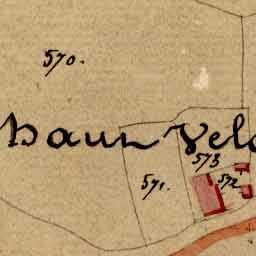 570.
Daun Veld
573
571.
572